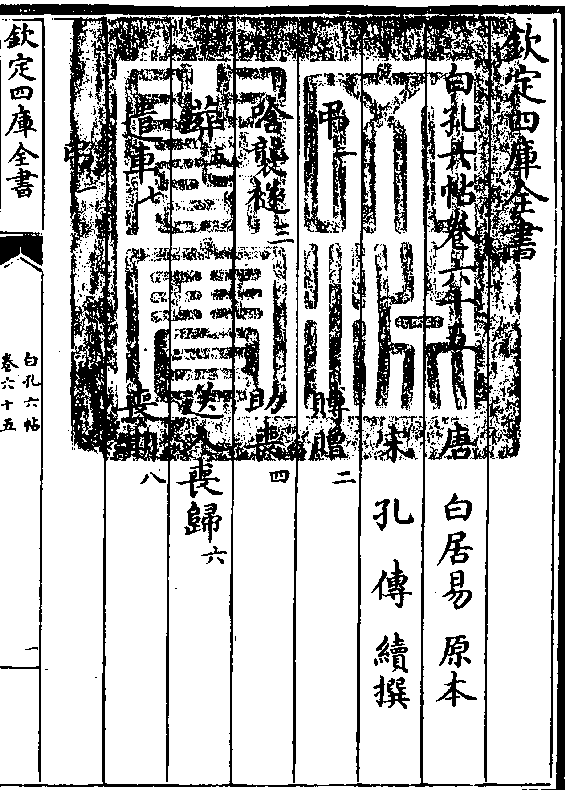 欽定四庫全書
白孔六帖卷六十五
唐 白居易 原本
宋 孔傳 續撰
弔一 賻贈二
啥襲襚三 助喪四
葬五 送人喪歸六
遣車七 喪期八
弔一
欽定四庫全書
白孔六帖
卷六十五
一